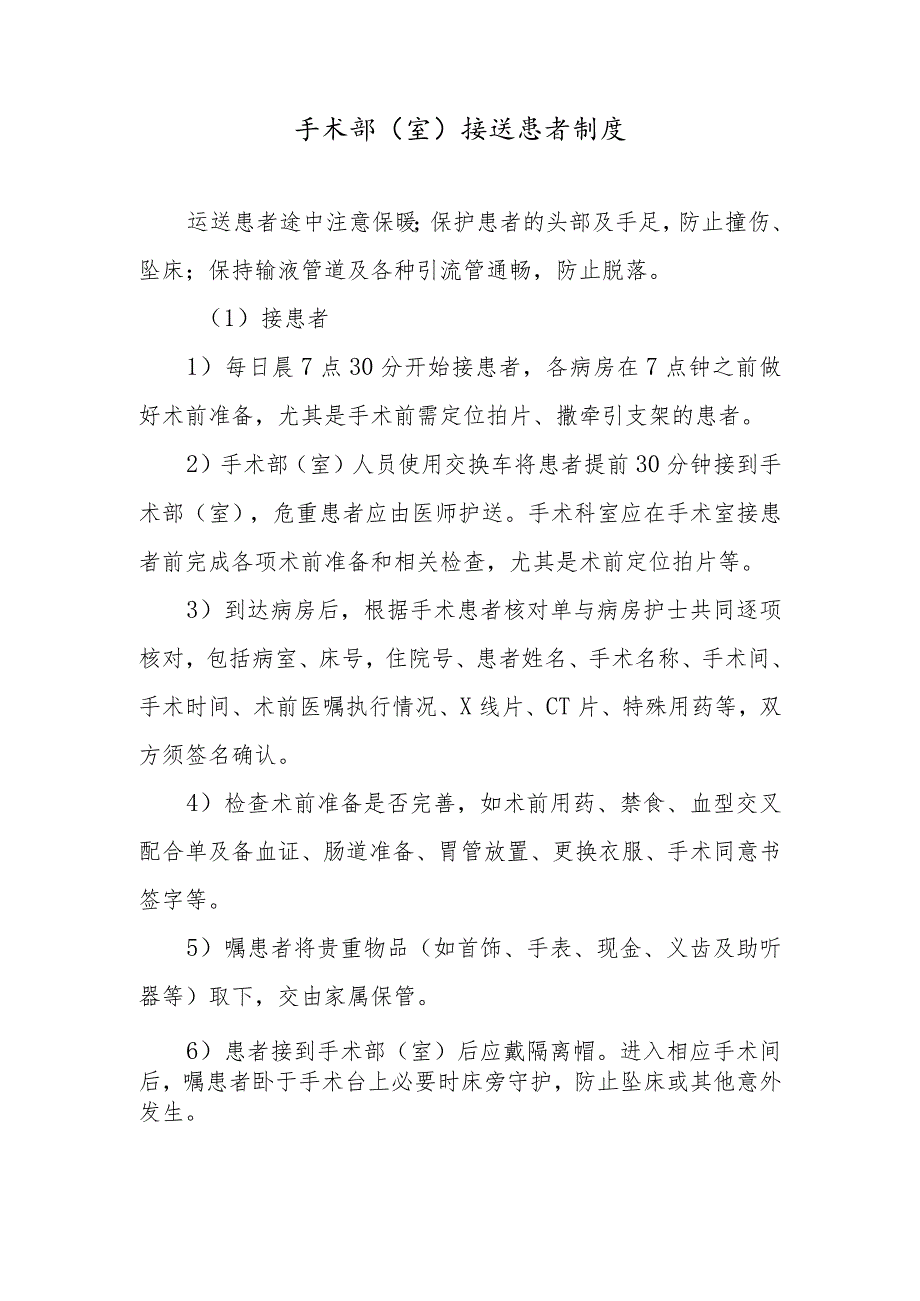 手术部（室）接送患者制度
运送患者途中注意保暖；保护患者的头部及手足，防止撞伤、
坠床；保持输液管道及各种引流管通畅，防止脱落。
（1）接患者
1）每日晨7点30分开始接患者，各病房在7点钟之前做
好术前准备，尤其是手术前需定位拍片、撒牵引支架的患者。
2）手术部（室）人员使用交换车将患者提前30分钟接到手
术部（室），危重患者应由医师护送。手术科室应在手术室接患
者前完成各项术前准备和相关检查，尤其是术前定位拍片等。
3）到达病房后，根据手术患者核对单与病房护士共同逐项
核对，包括病室、床号，住院号、患者姓名、手术名称、手术间、
手术时间、术前医嘱执行情况、X线片、CT片、特殊用药等，双
方须签名确认。
4）检查术前准备是否完善，如术前用药、禁食、血型交叉
配合单及备血证、肠道准备、胃管放置、更换衣服、手术同意书
签字等。
5）嘱患者将贵重物品（如首饰、手表、现金、义齿及助听
器等）取下，交由家属保管。
6）患者接到手术部（室）后应戴隔离帽。进入相应手术间
后，嘱患者卧于手术台上必要时床旁守护，防止坠床或其他意外
发生。